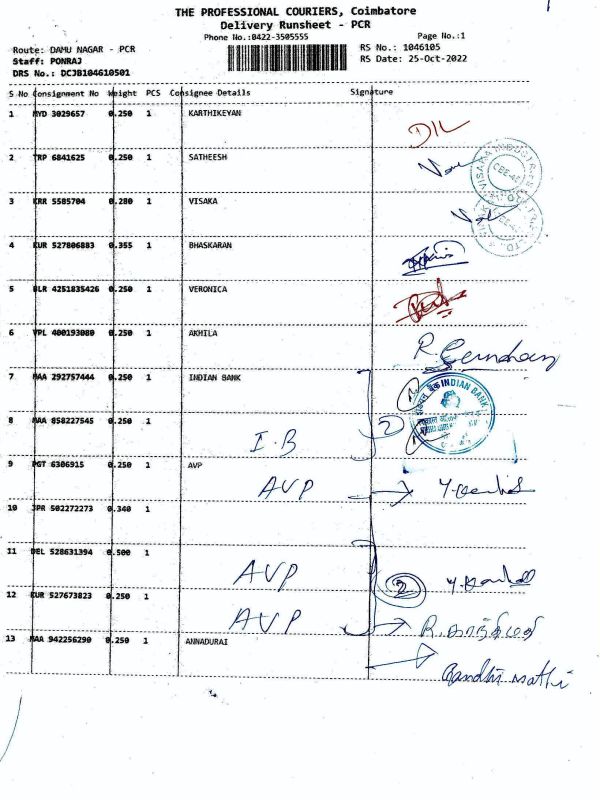 THE PROFESSIONAL COURIERS, Coimbatore
Delivery Runsheet - PCR
Phone No.:0422-3505555 Page No.:1
Route: DAMU NAGAR - PCR RS No.: 1046105
Staff: PONRAJ RS Date: 25-Oct-2022
DRS No.: DCJB104610501
S No Consignment No Weight PCS Consignee Details Signature
1 MYD 3029657 0.250 1 KARTHIKEYAN
2 TRP 6841625 0.250 1 SATHEESH
3 KRR 5585704 0.280 1 VISAKA
4 KUR 527806883 0.355 1 BHASKARAN
5 BLR 4251835426 0.250 1 VERONICA
6 VPL 400193080 0.250 1 AKHILA
7 MAA 292757444 0.250 1 INDIAN BANK
INDIAN BANK
8 MAA 858227545 0.250 1
I.B 2
9 PGT 6306915 0.250 1 AVP
AVP
10 JPR 502272273 0.340 1
11 DEL 528631394 0.500 1
AVP 2
12 KUR 527673823 0.250 1
AVP R. காந்திமதி
13 MAA 942256290 0.250 1 ANNADURAI
Gandhi mathi